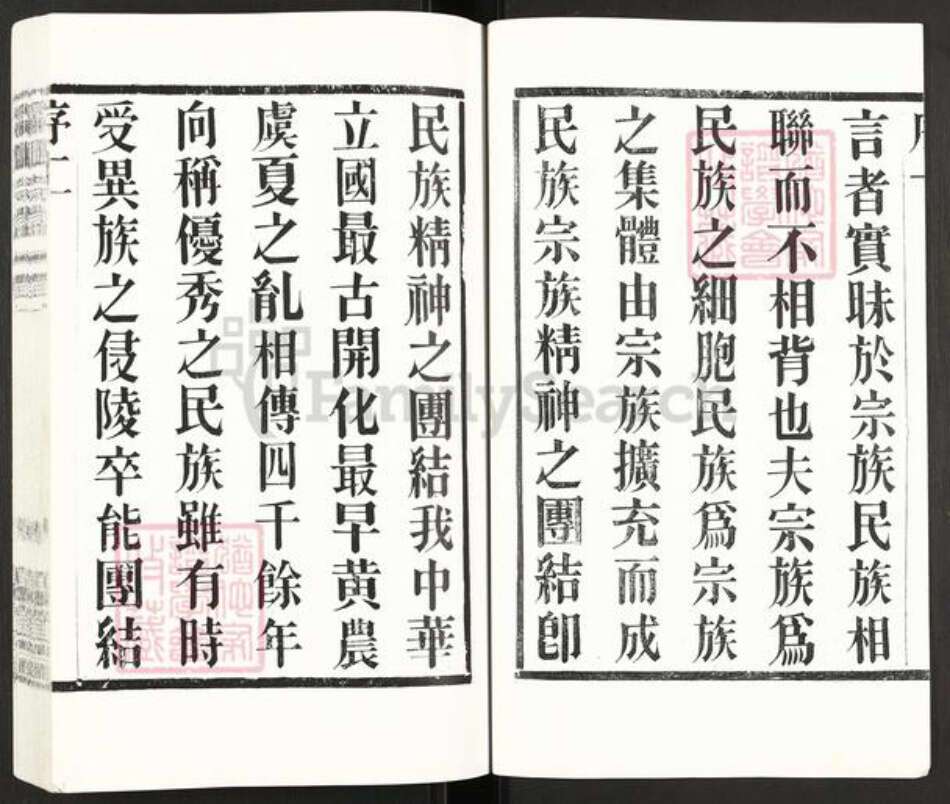 言者實昧於宗族民族相
聯而不相背也夫宗族爲
民族之細胞民族爲宗族
之集體由宗族擴充而成
民族宗族精神之團結卽
民族精神之團結我中華
立國最古開化最早黄農
虞夏之亂相傳四千餘年
向稱優秀之民族雖有時
受異族之侵陵卒能團結
序二
FamilySearch